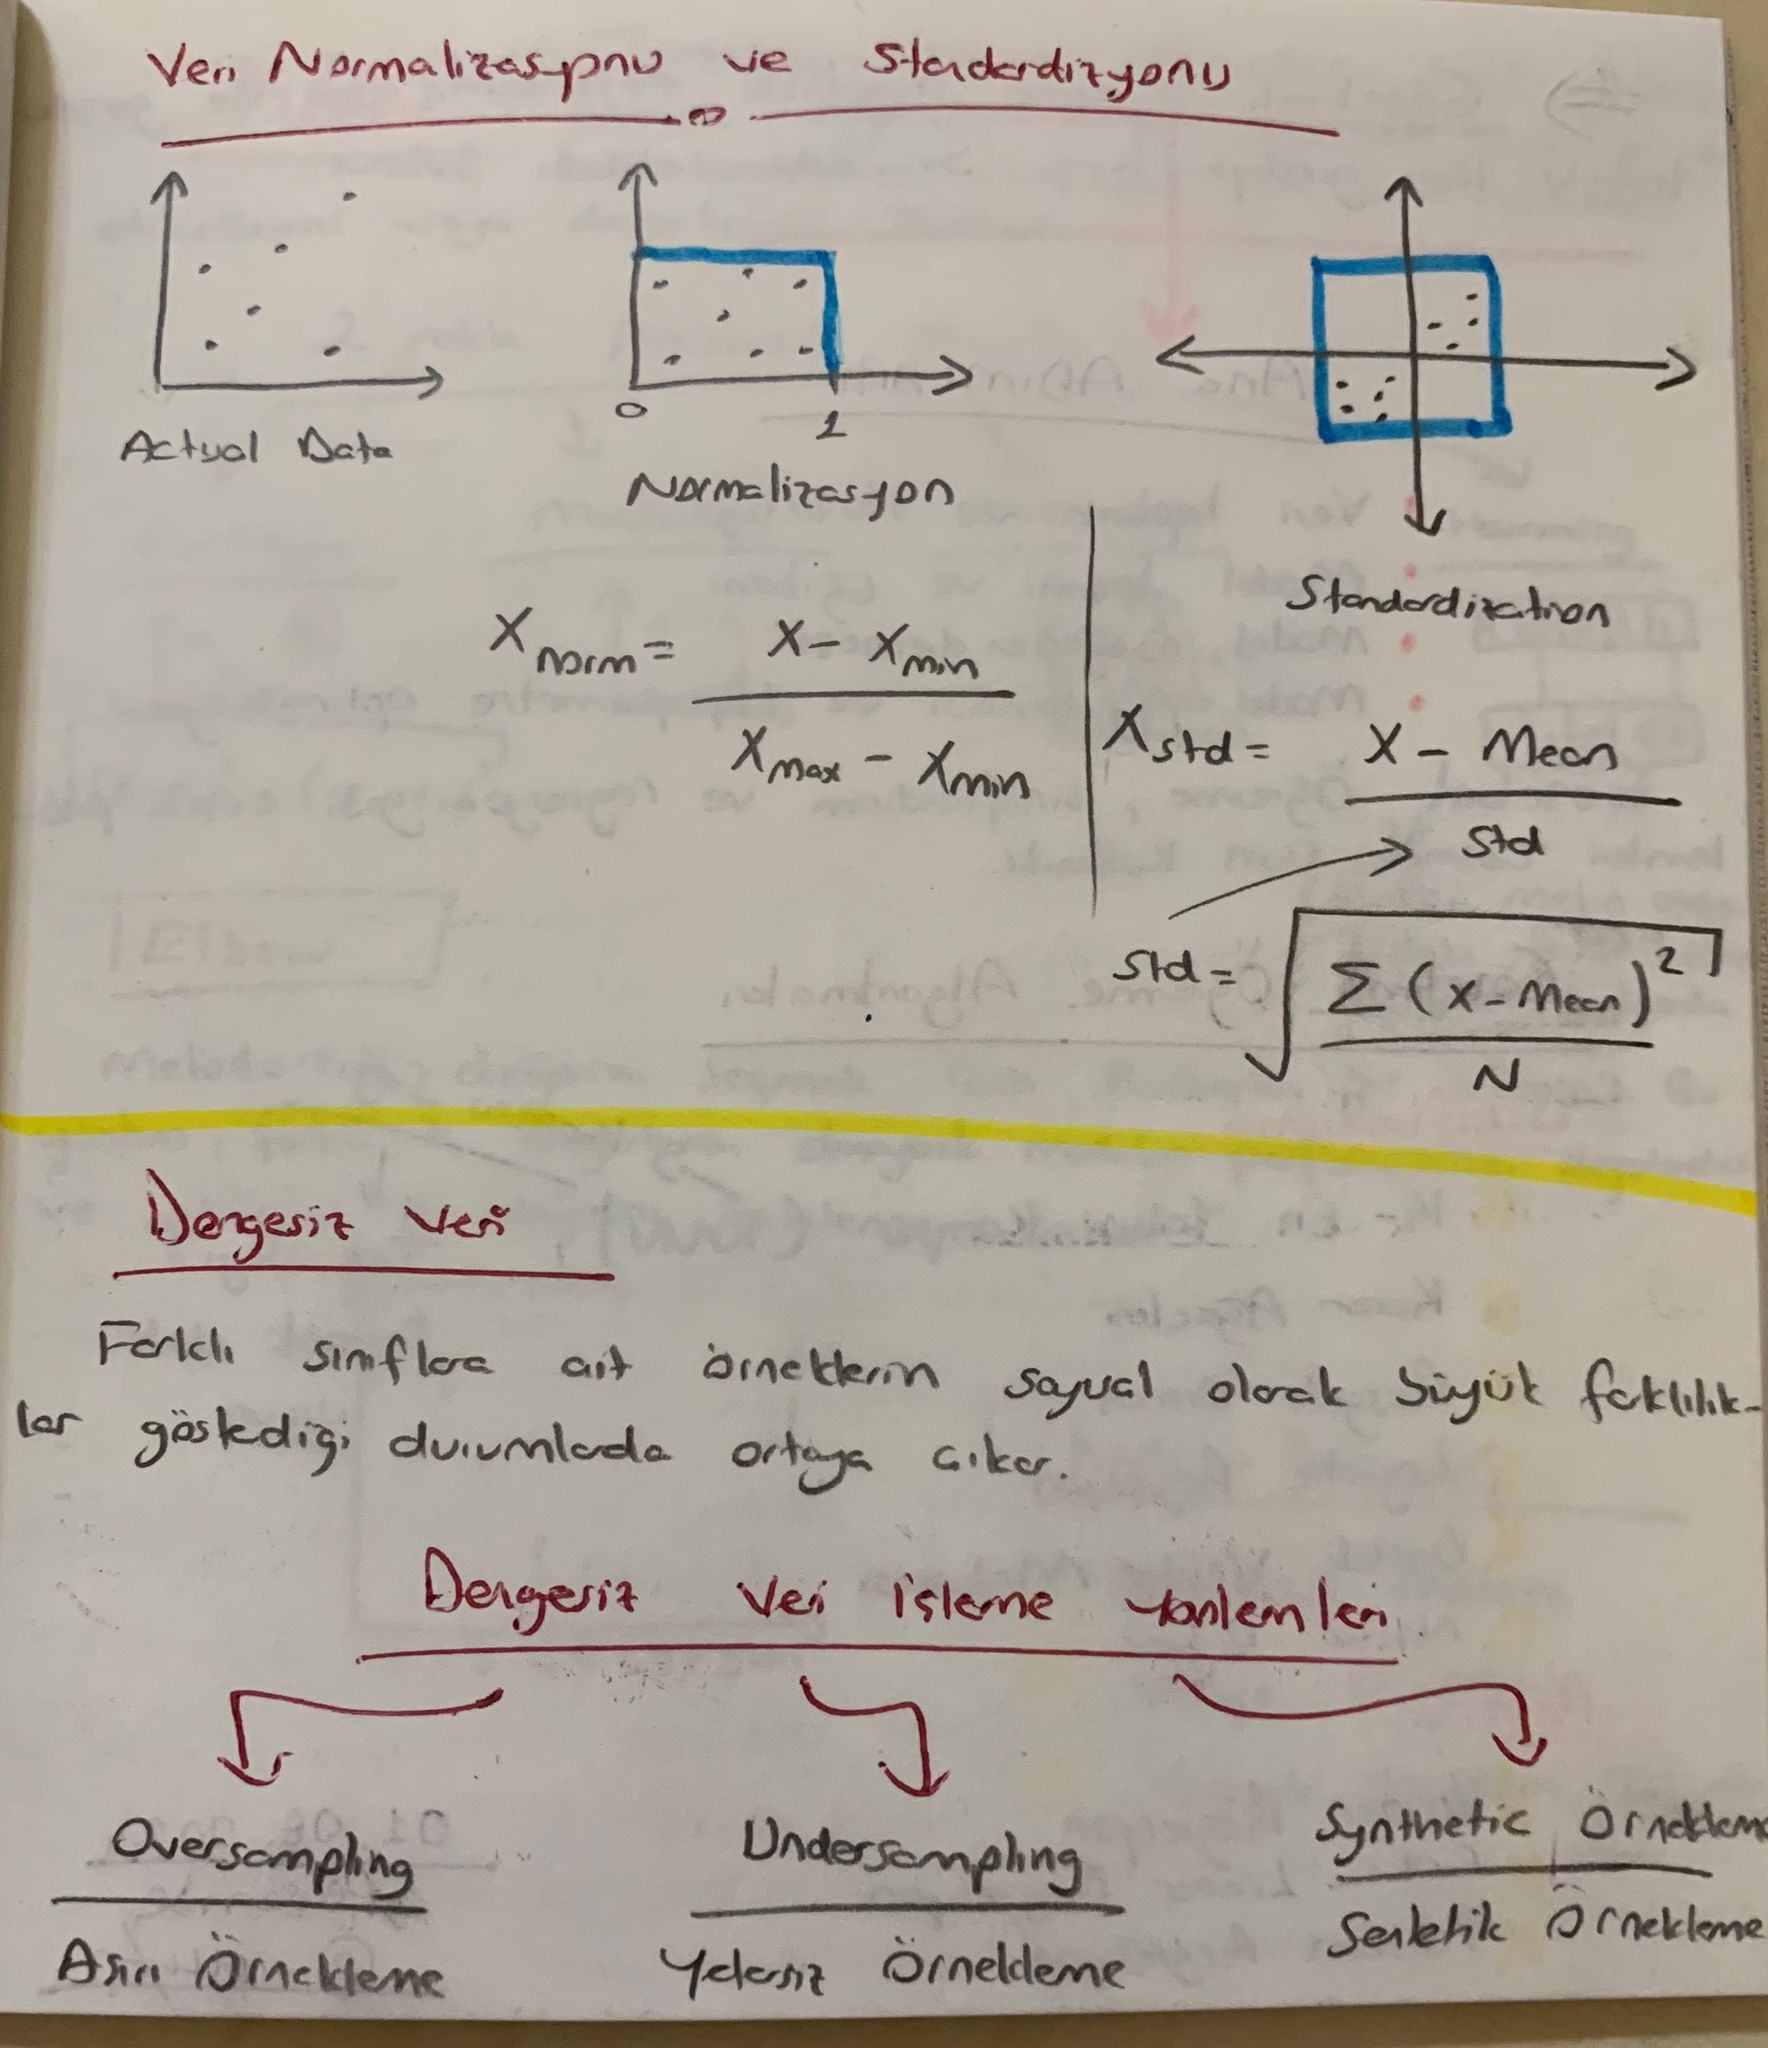 Veri Normalizasyonu ve Standardizyonu
Actual Data
0
1
Normalizasyon
Standardization
X norm = X - X min / X max - X min
X std = X - Mean / std
std = √ Σ (X - Mean)² / N
Dengesiz Veri
Farklı sınıflara ait örneklerin sayısal olarak büyük farklılık-
lar gösterdiği durumlarda ortaya çıkar.
Dengesiz Veri İşleme Yöntemleri
Oversampling
Undersampling
Synthetic Örnekleme
Aşırı Örnekleme
Yetersiz Örnekleme
Sentetik Örnekleme